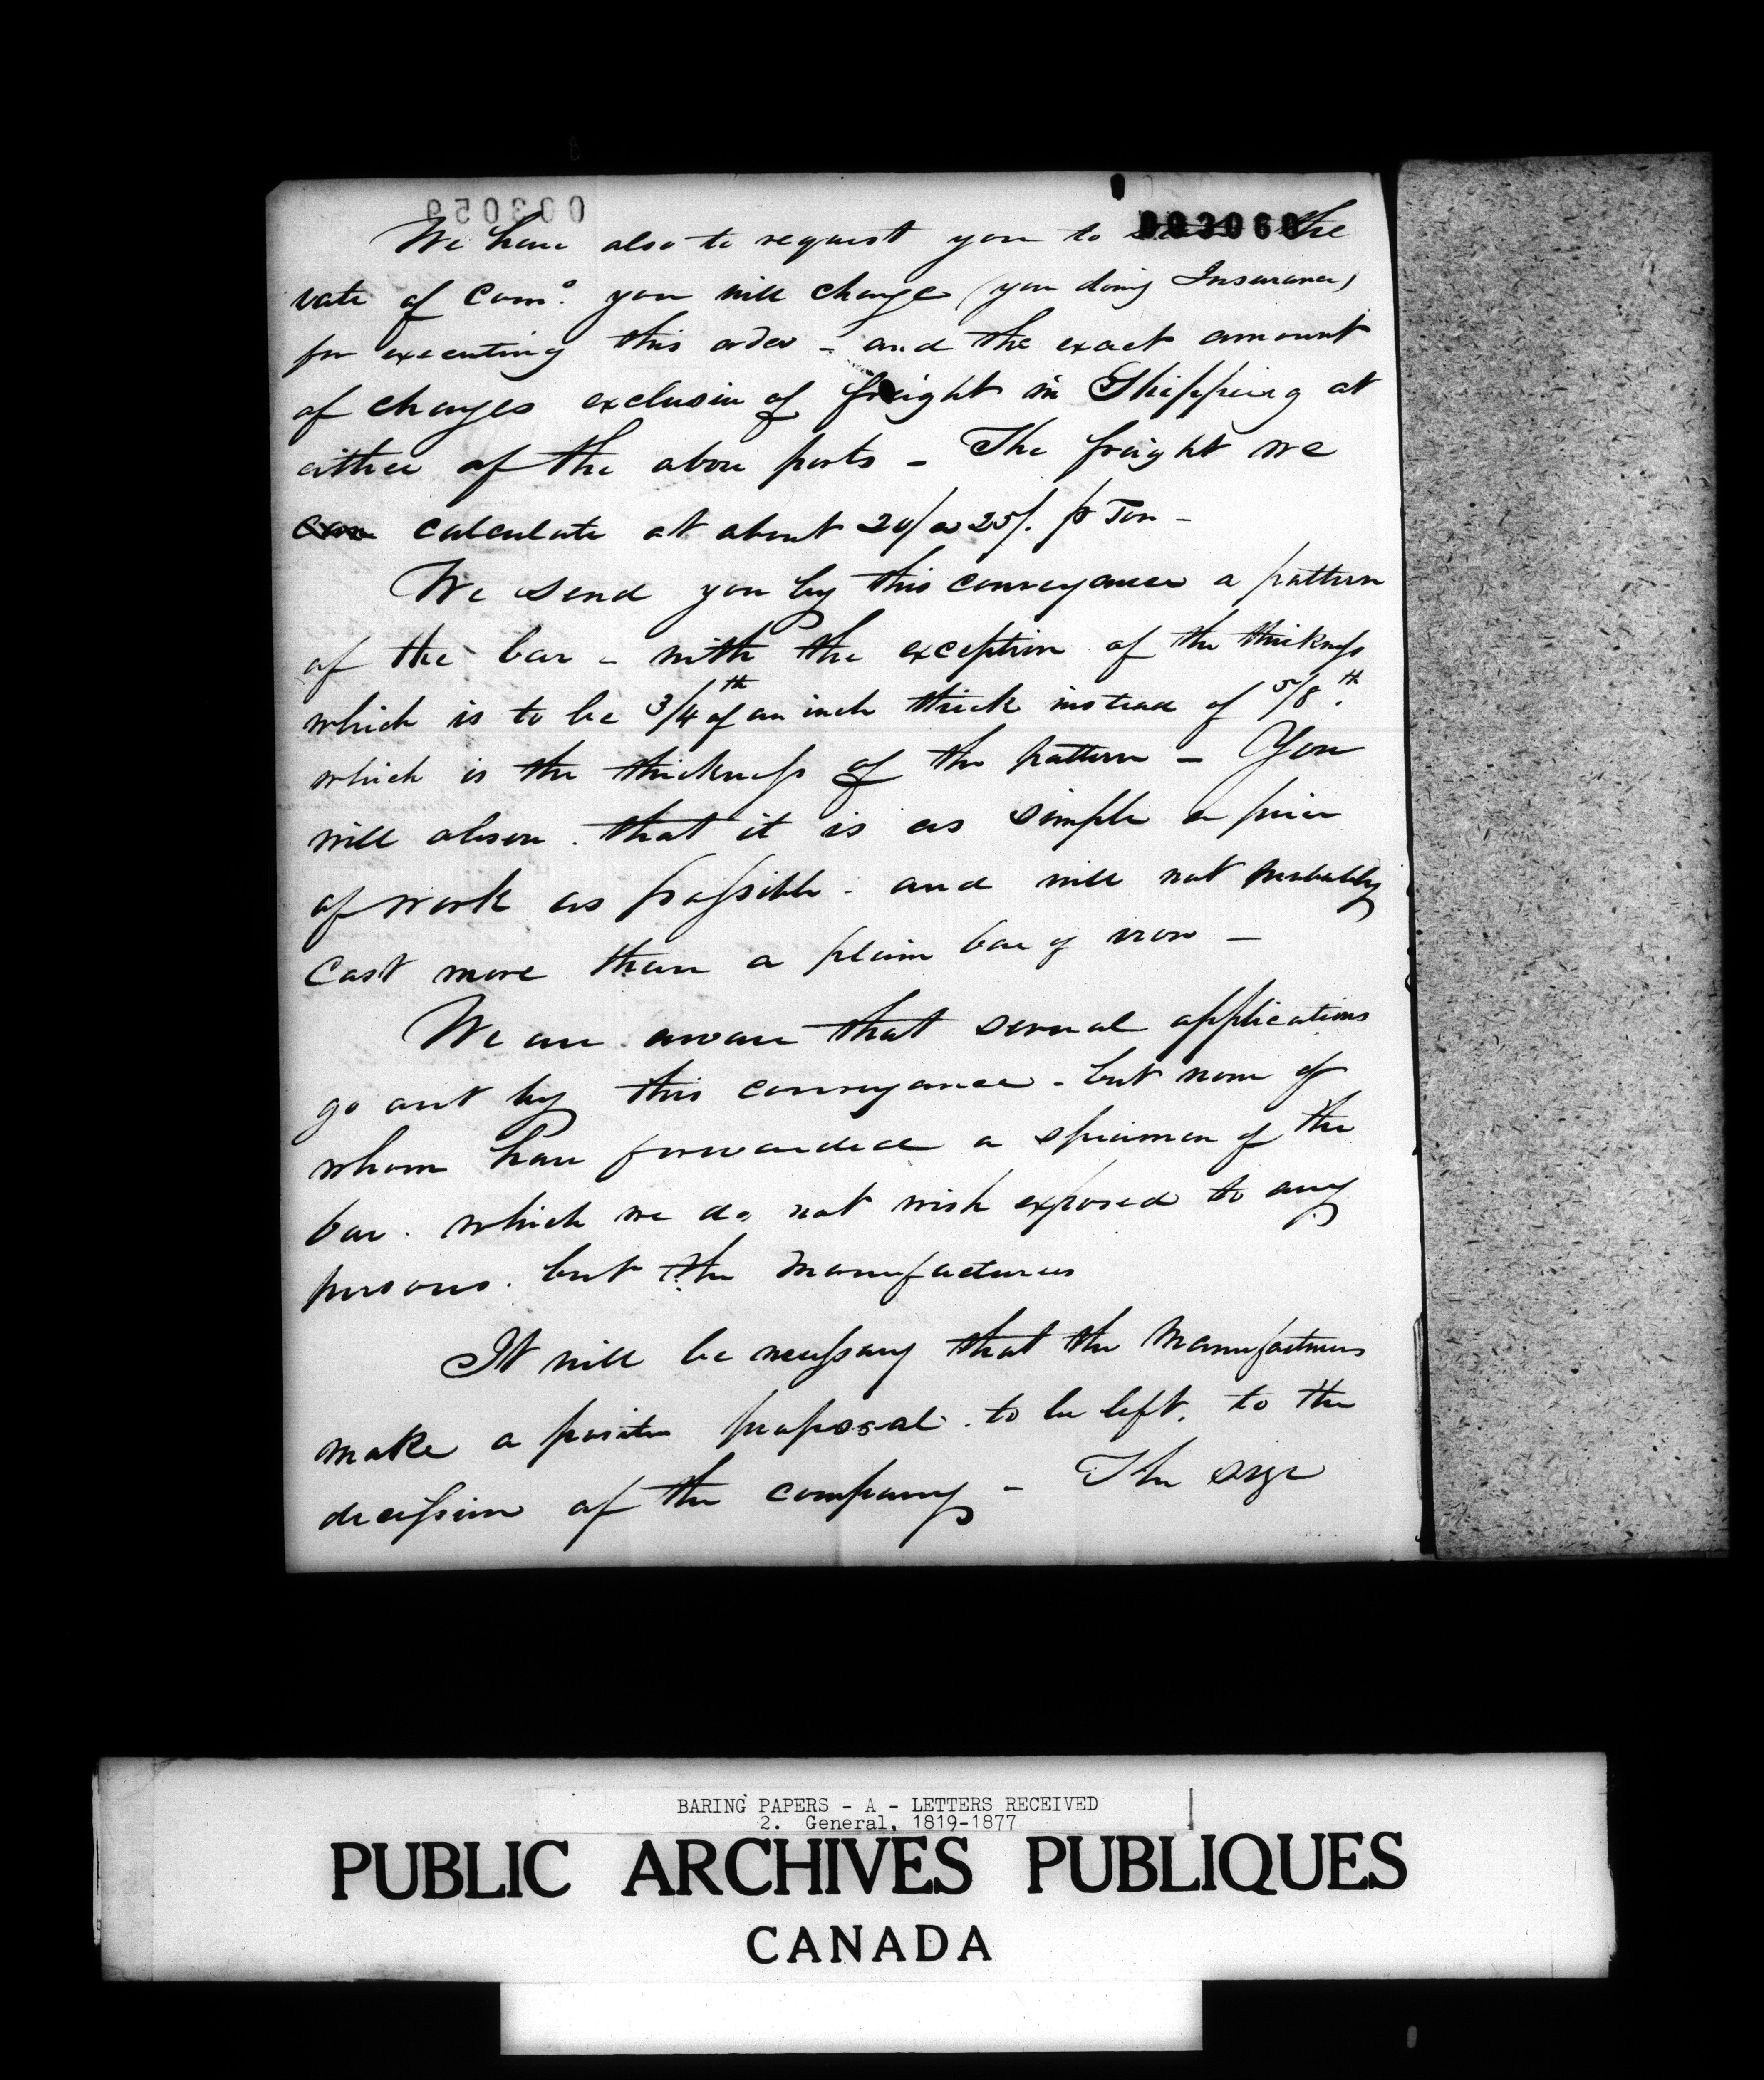 003059
003060
We have also to request you to the
rate of Como. you will charge (you doing Insurance)
for executing this order - and the exact amount
of charges exclusive of freight in Shipping at
either of the above ports - The freight we
calculate at about 20/ a 25/. p Ton -
We send you by this conveyance a pattern
of the bar - with the exception of the thickness
which is to be 3/4th of an inch thick instead of 5/8th.
which is the thickness of the pattern - You
will observe. that it is as simple a piece
of work as possible. and will not probably
Cost more than a plain bar of iron -
We are aware that several applications
go out by this conveyance - but none of
whom have forwarded a specimen of the
bar. which we do not wish exposed to any
persons. but the Manufacturers
It will be necessary that the Manufacturers
make a positive proposal. to be left. to the
decission of the company - The size
BARING PAPERS - A - LETTERS RECEIVED
2. General, 1819-1877
PUBLIC ARCHIVES PUBLIQUES
CANADA